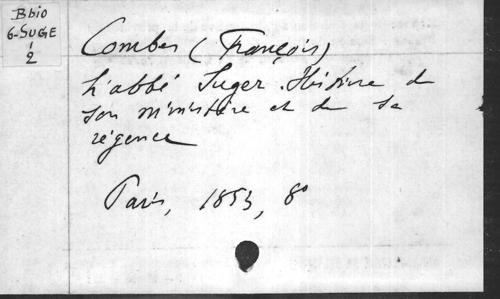 Bbio
6-SUGE
1
2
Combes (François)
L'abbé Suger. Histoire de
son ministère et de sa
régence
Paris, 1853, 8°